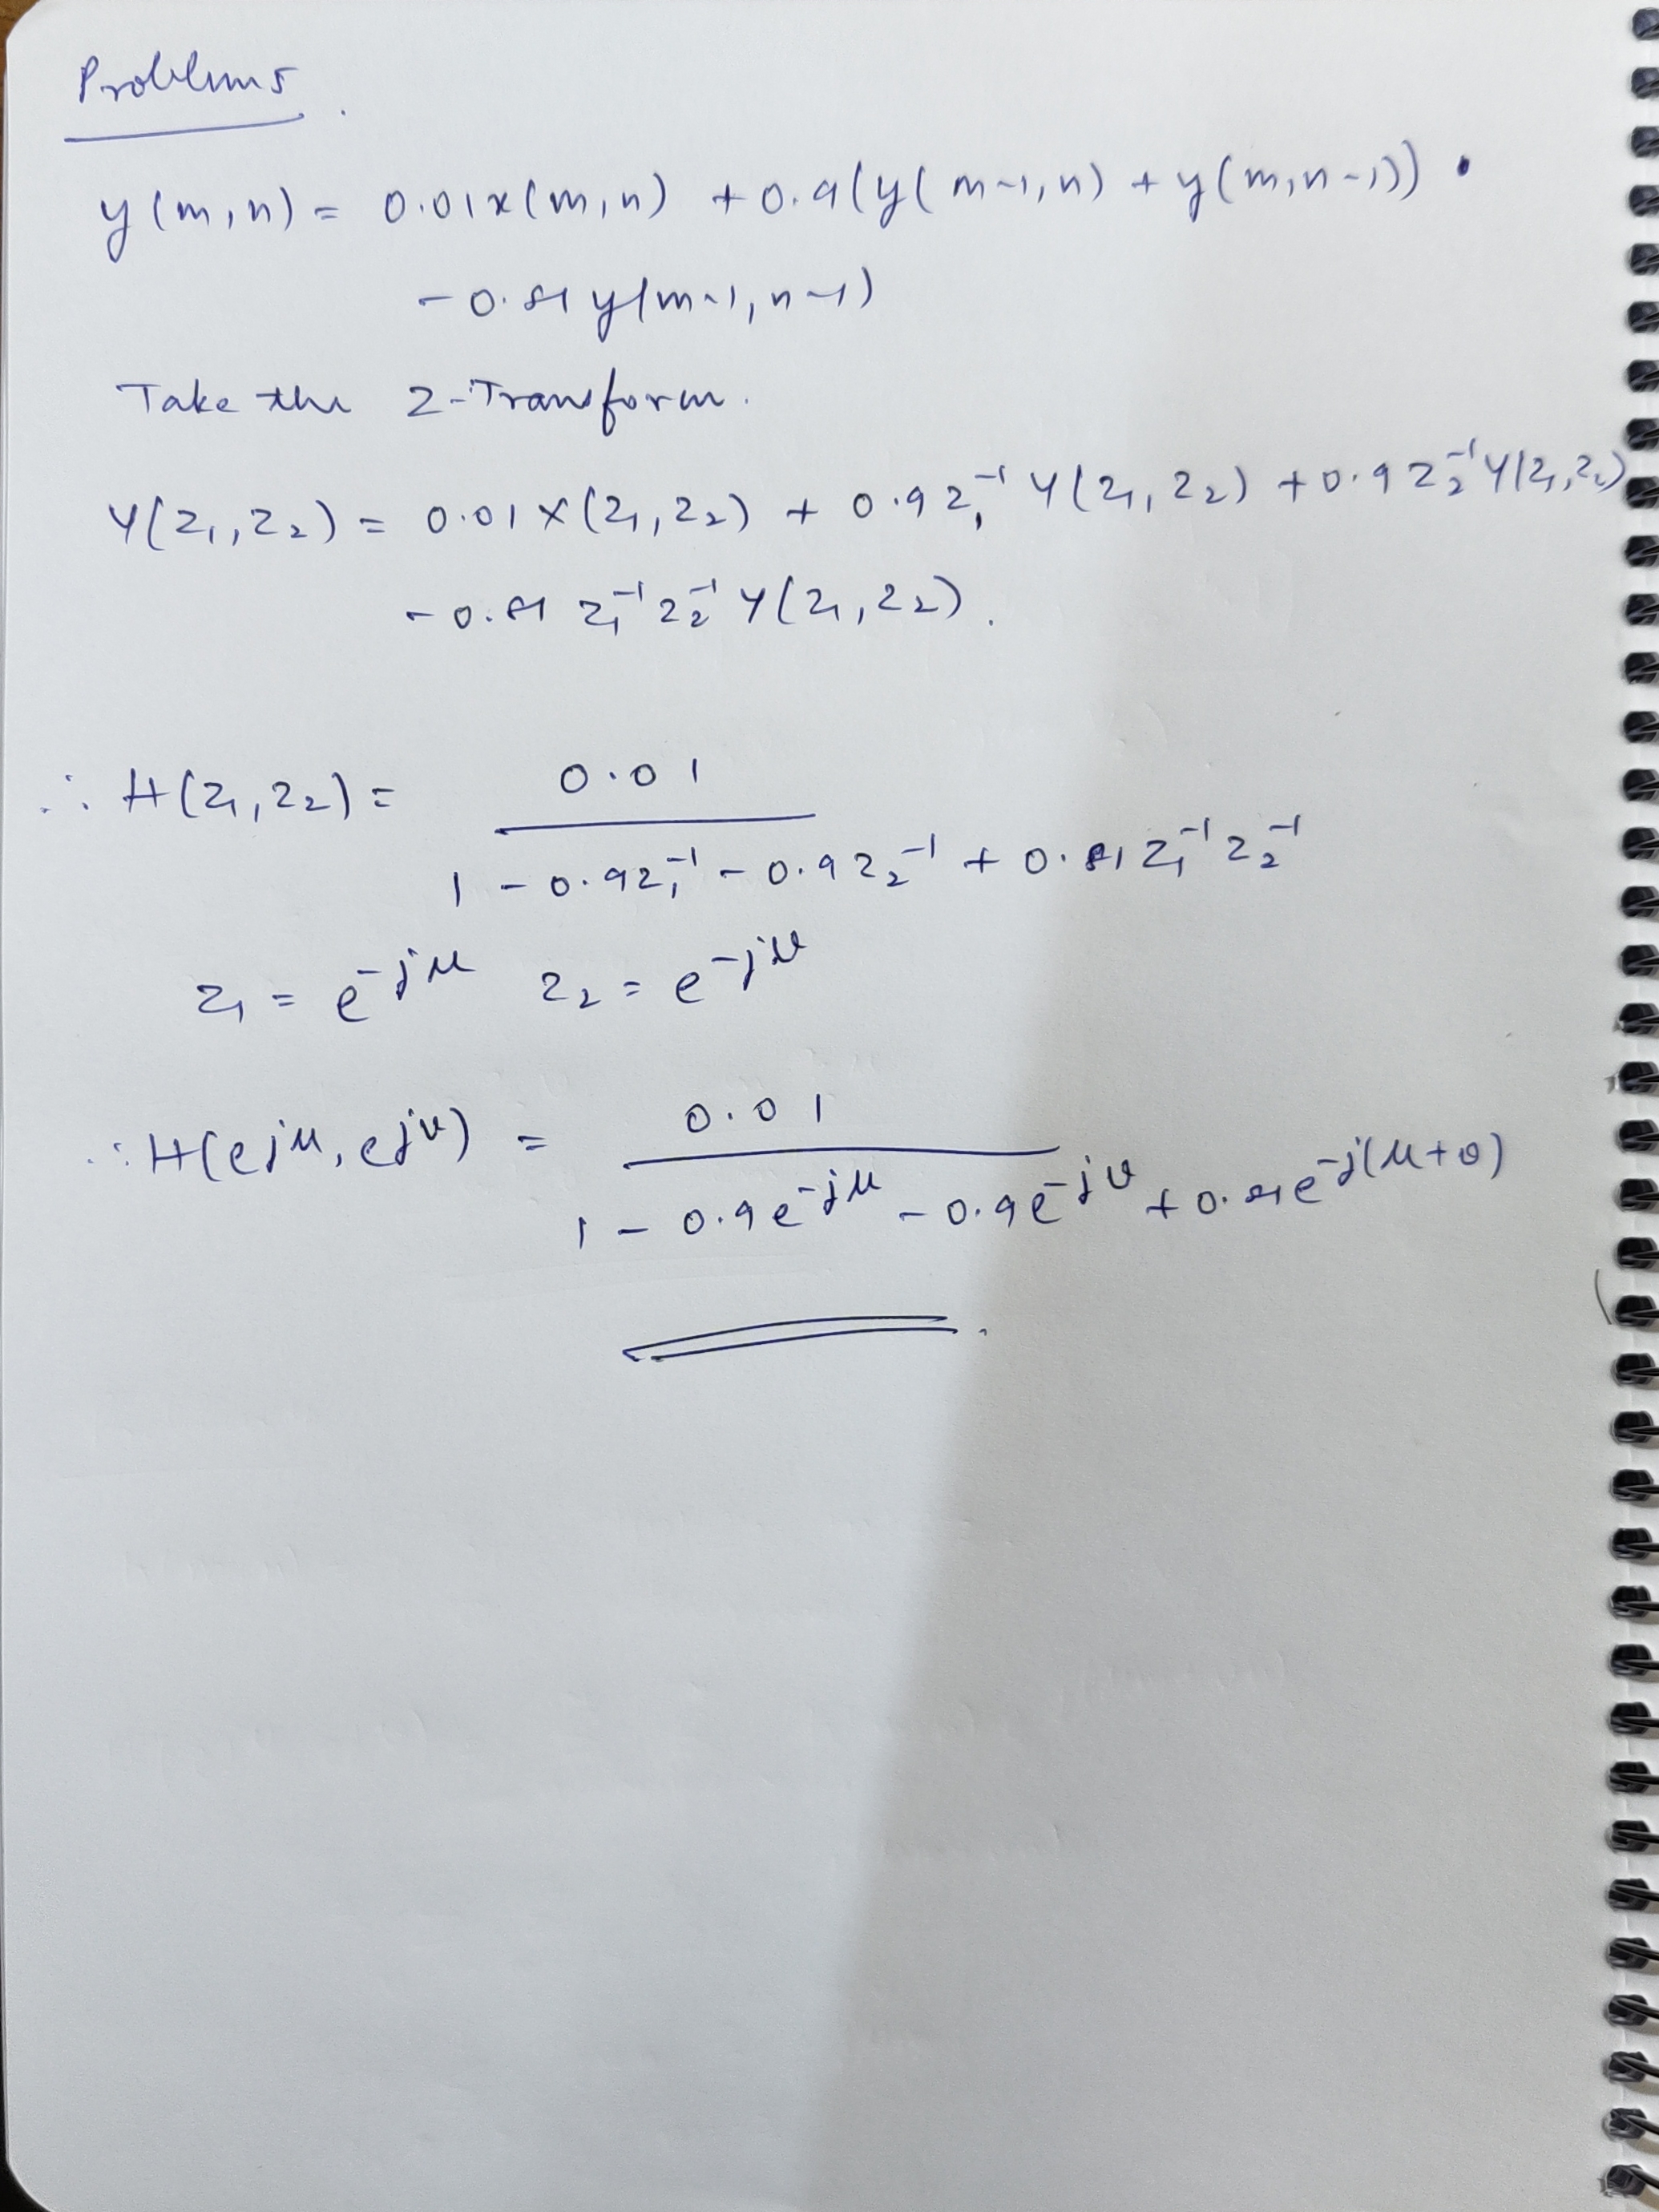 Problems.
y(m,n) = 0.01x(m,n) + 0.9(y(m-1,n) + y(m,n-1))
-0.81y(m-1,n-1)
Take the Z-Transform.
Y(z₁,z₂) = 0.01X(z₁,z₂) + 0.9z₁⁻¹Y(z₁,z₂) + 0.9z₂⁻¹Y(z₁,z₂)
-0.81 z₁⁻¹z₂⁻¹Y(z₁,z₂).
∴ H(z₁,z₂) = 0.01
1 - 0.9z₁⁻¹ - 0.9z₂⁻¹ + 0.81z₁⁻¹z₂⁻¹
z₁ = e^-jμ z₂ = e^-jν
∴ H(e^jμ, e^jν) = 0.01
1 - 0.9e^-jμ - 0.9e^-jν + 0.81e^-j(μ+ν)